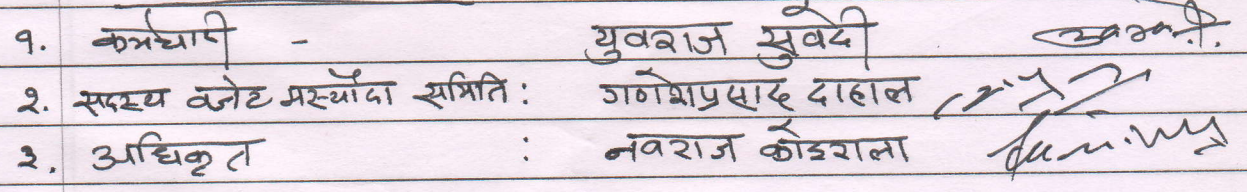 १. कर्मचारी - युवराज सुवेदी
२. सदस्य वजेट मस्यौदा समिति : गणेशप्रसाद दाहाल
३. अधिकृत : नवराज कोइराला